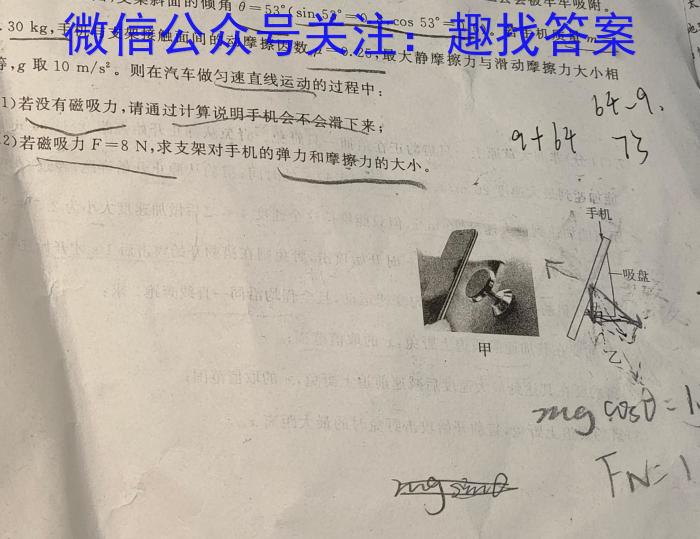 支架斜面的倾角θ=53°(sin 53°= cos 53°=
微信公众号关注：趣找答案
.30 kg,手机与支架接触面间的动摩擦因数μ=0.25,最大静摩擦力与滑动摩擦力大小相
等,g 取 10 m/s²。则在汽车做匀速直线运动的过程中：
1)若没有磁吸力,请通过计算说明手机会不会滑下来；
2)若磁吸力 F=8 N,求支架对手机的弹力和摩擦力的大小。
64-9.
9+64 73
手机
吸盘
甲
乙
mg cosθ=1.
FN=1
mg sinθ